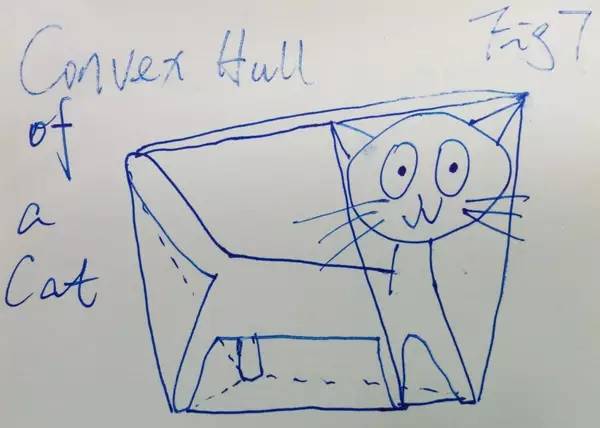 Convex Hull
of
a
Cat
Fig 7